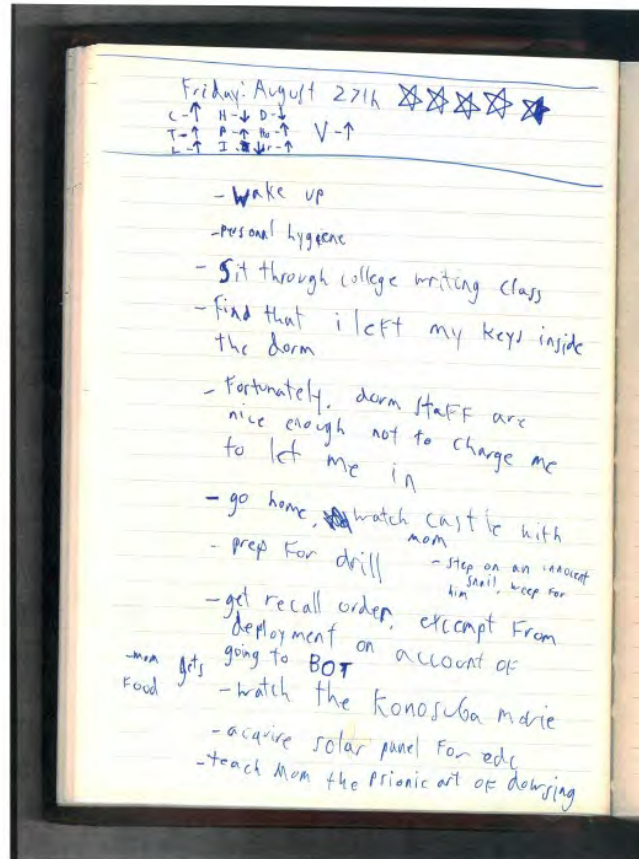 Friday: August 27th ☆☆☆☆★
C-↑ H-↓ D-↓
T-↑ P-↑ Ho-↑ V-↑
L-↑ I-↓ r-↑
- Wake up
- personal hygiene
- Sit through college writing class
- find that i left my keys inside
the dorm
- Fortunately, dorm staff are
nice enough not to charge me
to let me in
- go home, watch castle with
mom
- prep for drill
- step on an innocent
snail, weep for
him
- get recall order, excempt from
deployment on account of
going to BOT
- mom gets
food
- watch the Konosuba movie
- acquire solar panel for edc
- teach mom the psionic art of dowsing